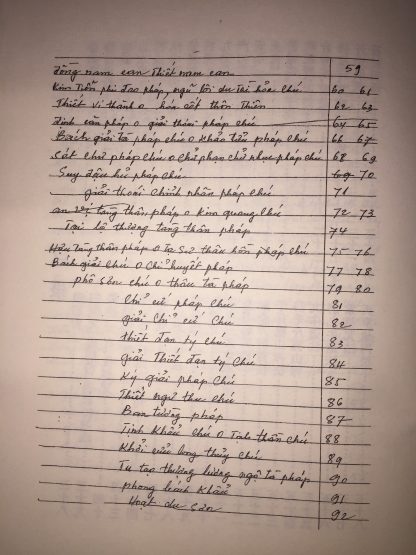 đồng nam can Thiết nam can 59
Kim Tiễn phi đao pháp, ngũ lôi du Tài hỏa chú 60 61
Thiết vi thành o hóa cốt thôn Thiên 62 63
đình pháp o giải thoái pháp chú 64 65
Bách giải tà pháp chú o Khảo tiễu pháp chú 66 67
Sát chư pháp chú o chư phạn chư như pháp chú 68 69
Suy đậu hủ pháp chú 69 70
giải thoái Chỉnh nhân pháp chú 71
an vị tàng thân pháp o Kim quang chú 72 73
Tại lộ thượng tàng thân pháp 74
tàng thân pháp o Tổ Sư thâu hồn pháp chú 75 76
Bách giải chú o Chỉ huyết pháp 77 78
phô Sên chú o thâu tà pháp 79 80
Chỉ cứ pháp chú 81
giải Chỉ cứ chú 82
thiết đan tý chú 83
giải Thiết đan tý chú 84
Ký giải pháp chú 85
Thiết ngư thu chú 86
Ban tường pháp 87
Tịnh Khẩu chú o Tịnh thân chú 88
Khởi cửu long thủy chú 89
Tu tạo thượng lương ngộ tà pháp 90
phong bách Khẩu 91
Hoạt du sản 92